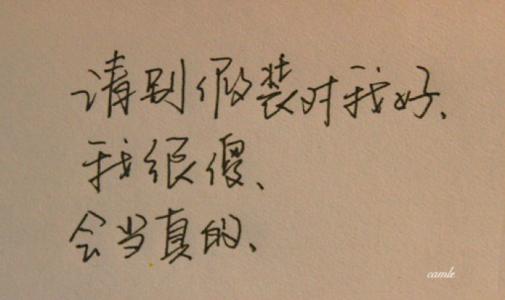 请别假装对我好、
我很傻、
会当真的、
camle